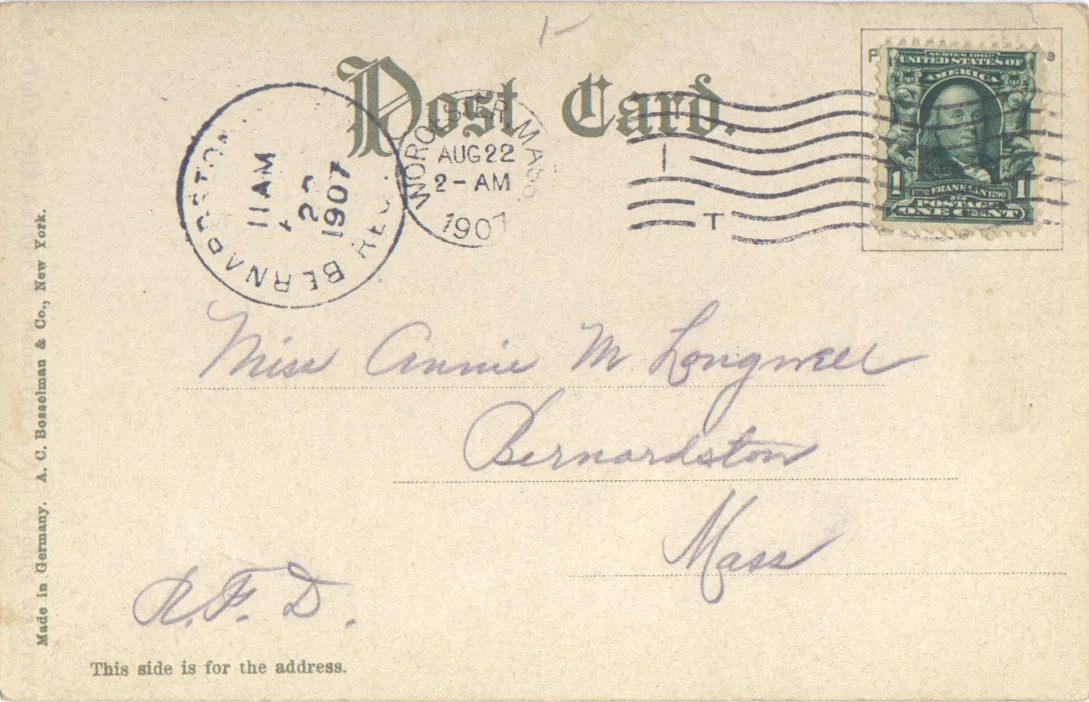 Post Card.
WORCESTER, MASS.
AUG 22
2 - AM
1907
T
BERNARDSTON
REC'D.
11 AM
1907
SERIES 1902
UNITED STATES OF
AMERICA
1 FRANKLIN 1790 1
POSTAGE
ONE CENT
Miss Annie M. Longwell
Bernardston
Mass
R. F. D.
This side is for the address.
Made in Germany. A. C. Bosselman & Co., New York.